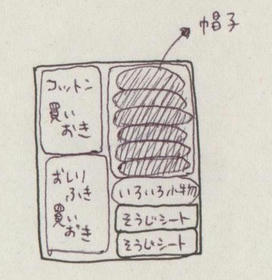 帽子
コットン
買い
おき
おしり
ふき
買い
おき
いろいろ小物
そうじシート
そうじシート